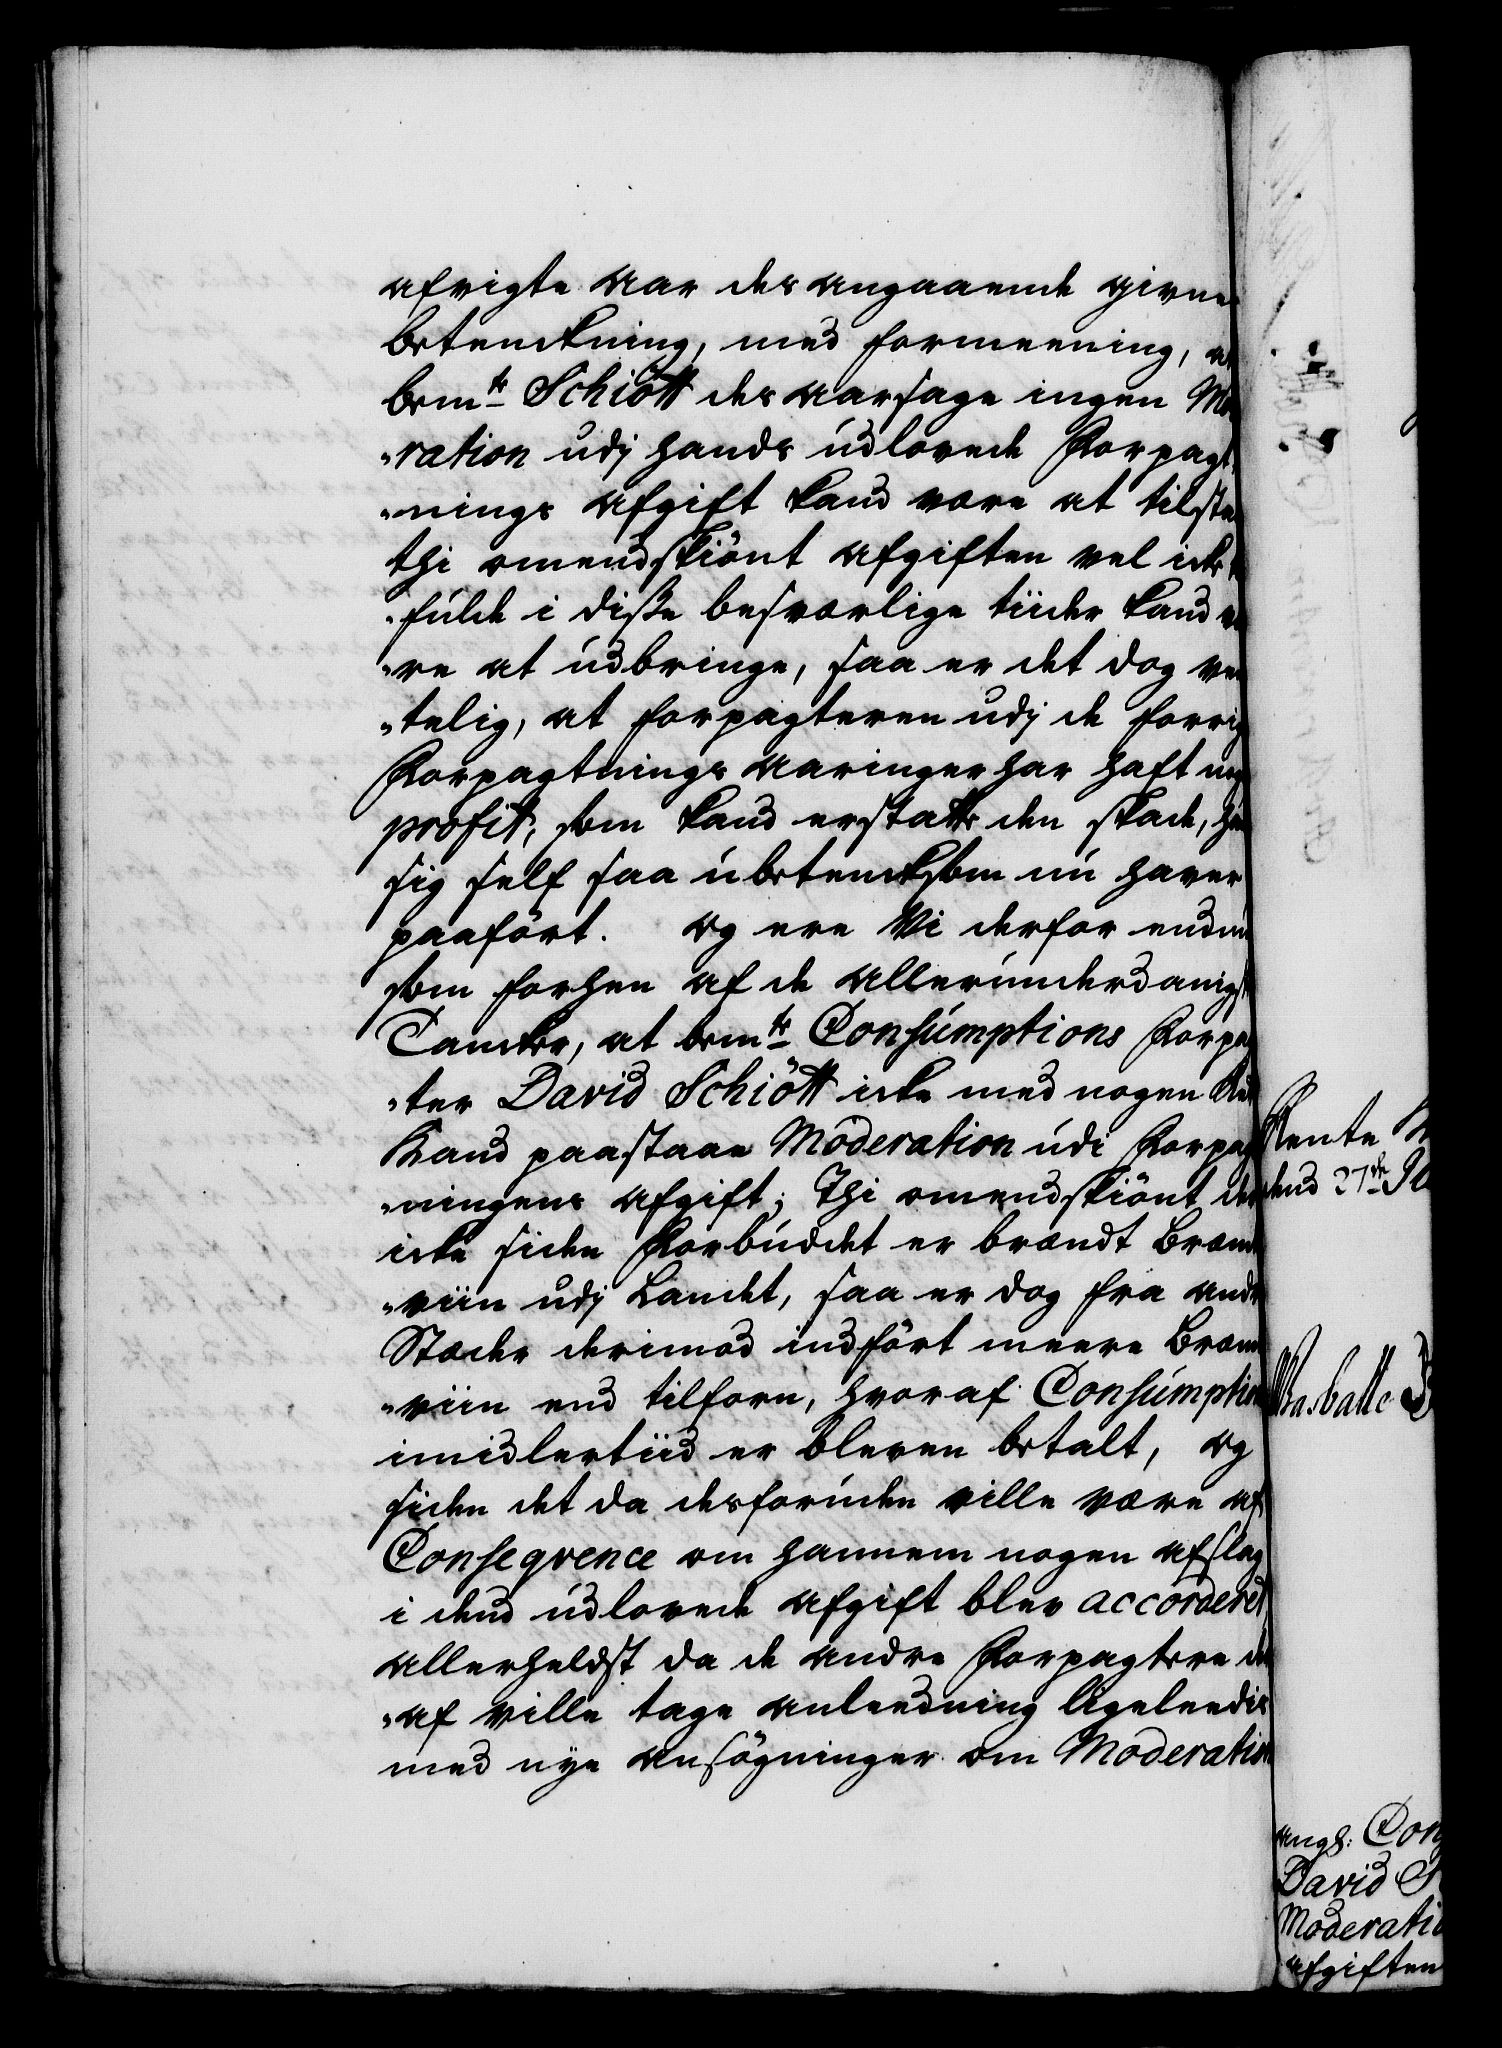 afvigte Aar des angaaende givne
betenckning, med formeening, at
bem.te Schiött des aarsage ingen Mo
"ration udj hands udlovede Forpagt
"nings Afgift kand være at tilstaa
thi omendskiönt Afgiften vel icke
"fulde i disse besværlige tiider kand væ
"re at udbringe, saa er det dog ven
"telig, at forpagteren udj de forrige
Forpagtnings Aaringer har haft
profit, som kand erstatte den skade, hand
sig self saa ubetencksom nu haver
paafört. Og ere Vi derfor endnu
som forhen af de allerunderdanigste
Tancker, at bem.te Consumptions Forpag
"ter David Schiött icke med nogen
Kand paastaae Moderation udi Forpagt
"ningens Afgift; Thi omendskiönt der
icke siden Forbuddet er brændt Brænde
"viin udj Landet, saa er dog fra andre
Stæder derimod indfört meere Brænde
"viin end tilforn, hvoraf Consumption
imidlertiid er bleven betalt, og
siden det da desforuden ville være af
Conseqvence om hannem nogen afslag
i dend udlovede Afgift blev accorderet,
allerheldst da de andre Forpagtere der
"af ville tage anleedning ligeleedis
med nye ansögninger om Moderation
Rente
dend 27de
angl: Con
David S
Moderatio
afgiften